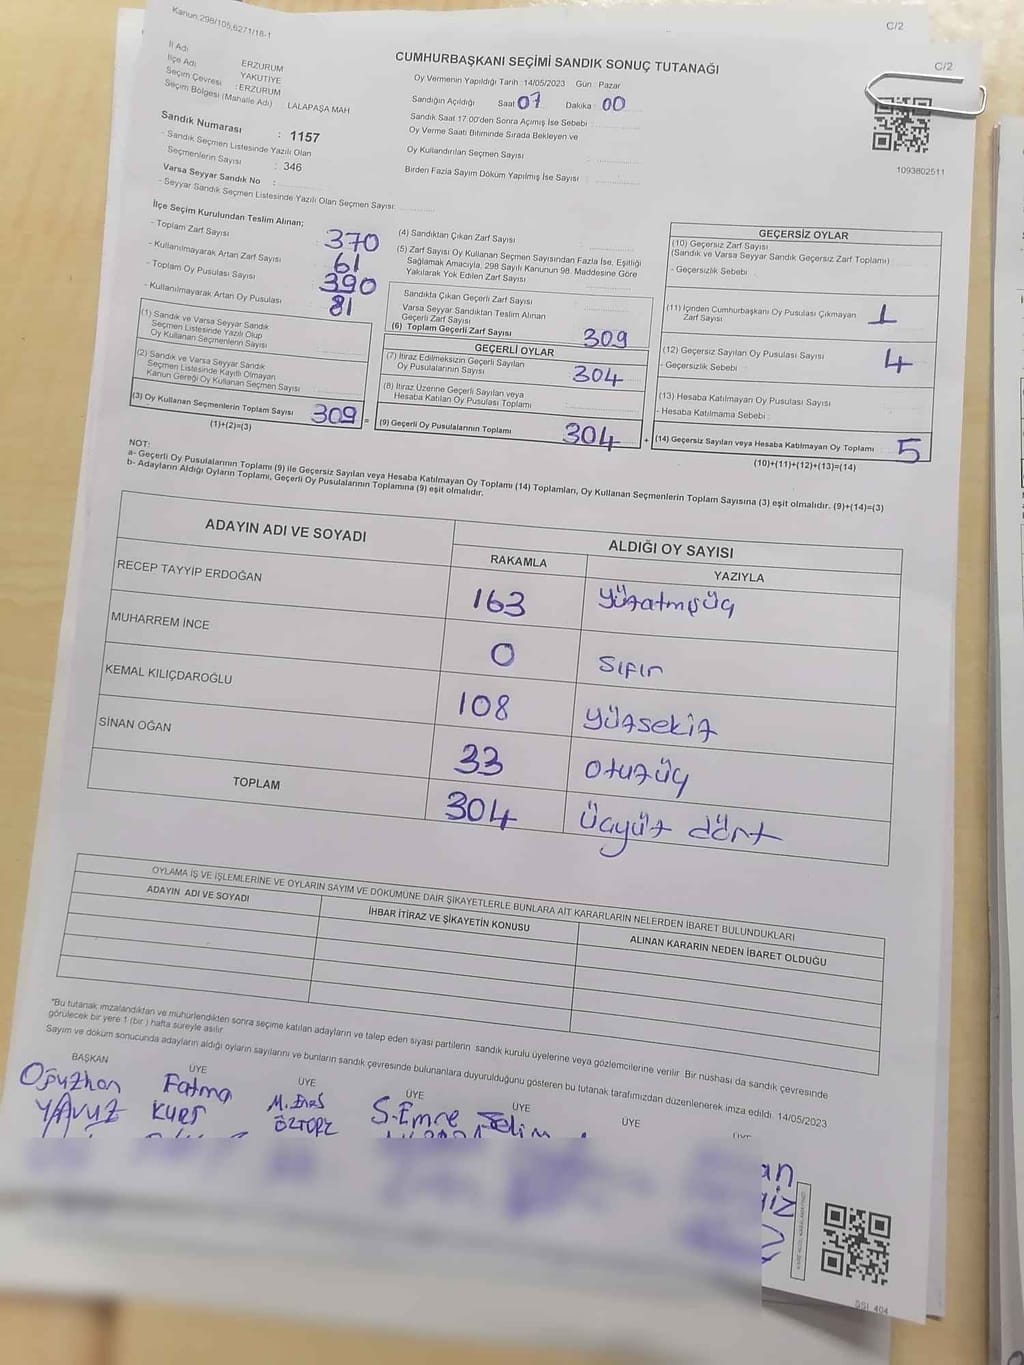 Kanun:298/105,6271/18-1
C/2
C/2
CUMHURBAŞKANI SEÇİMİ SANDIK SONUÇ TUTANAĞI
İl Adı ERZURUM
İlçe Adı YAKUTİYE
Seçim Çevresi : ERZURUM
Seçim Bölgesi (Mahalle Adı) LALAPAŞA MAH
Oy Vermenin Yapıldığı Tarih :14/05/2023 Gün : Pazar
Sandığın Açıldığı Saat 07 Dakika : 00
Sandık Saat 17.00'den Sonra Açımış İse Sebebi :
Oy Verme Saati Bitiminde Sırada Bekleyen ve
Oy Kullandırılan Seçmen Sayısı
Birden Fazla Sayım Döküm Yapılmış İse Sayısı :
1093802511
Sandık Numarası : 1157
- Sandık Seçmen Listesinde Yazılı Olan
Seçmenlerin Sayısı : 346
Varsa Seyyar Sandık No :
- Seyyar Sandık Seçmen Listesinde Yazılı Olan Seçmen Sayısı:
İlçe Seçim Kurulundan Teslim Alınan;
- Toplam Zarf Sayısı 370
- Kullanılmayarak Artan Zarf Sayısı 61
- Toplam Oy Pusulası Sayısı 390
- Kullanılmayarak Artan Oy Pusulası 81
(1) Sandık ve Varsa Seyyar Sandık
Seçmen Listesinde Yazılı Olup
Oy Kullanan Seçmenlerin Sayısı
(2) Sandık ve Varsa Seyyar Sandık
Seçmen Listesinde Kayıtlı Olmayan
Kanun Gereği Oy Kullanan Seçmen Sayısı
(3) Oy Kullanan Seçmenlerin Toplam Sayısı 309 =
(1)+(2)=(3)
(4) Sandıktan Çıkan Zarf Sayısı
(5) Zarf Sayısı Oy Kullanan Seçmen Sayısından Fazla İse, Eşitliği
Sağlamak Amacıyla, 298 Sayılı Kanunun 98. Maddesine Göre
Yakılarak Yok Edilen Zarf Sayısı
Sandıkta Çıkan Geçerli Zarf Sayısı
Varsa Seyyar Sandıktan Teslim Alınan
Geçerli Zarf Sayısı
(6) Toplam Geçerli Zarf Sayısı 309
GEÇERLİ OYLAR
(7) İtiraz Edilmeksizin Geçerli Sayılan
Oy Pusulalarının Sayısı 304
(8) İtiraz Üzerine Geçerli Sayılan veya
Hesaba Katılan Oy Pusulası Toplamı
(9) Geçerli Oy Pusulalarının Toplamı 304 +
GEÇERSİZ OYLAR
(10) Geçersiz Zarf Sayısı
(Sandık ve Varsa Seyyar Sandık Geçersiz Zarf Toplamı)
- Geçersizlik Sebebi :
(11) İçinden Cumhurbaşkanı Oy Pusulası Çıkmayan
Zarf Sayısı 1
(12) Geçersiz Sayılan Oy Pusulası Sayısı 4
- Geçersizlik Sebebi :
(13) Hesaba Katılmayan Oy Pusulası Sayısı
- Hesaba Katılmama Sebebi :
(14) Geçersiz Sayılan veya Hesaba Katılmayan Oy Toplamı 5
(10)+(11)+(12)+(13)=(14)
NOT:
a- Geçerli Oy Pusulalarının Toplamı (9) ile Geçersiz Sayılan veya Hesaba Katılmayan Oy Toplamı (14) Toplamları, Oy Kullanan Seçmenlerin Toplam Sayısına (3) eşit olmalıdır. (9)+(14)=(3)
b- Adayların Aldığı Oyların Toplamı, Geçerli Oy Pusulalarının Toplamına (9) eşit olmalıdır.
ADAYIN ADI VE SOYADI ALDIĞI OY SAYISI
RAKAMLA YAZIYLA
RECEP TAYYİP ERDOĞAN 163 yüzatmışüç
MUHARREM İNCE 0 Sıfır
KEMAL KILIÇDAROĞLU 108 yüzsekiz
SİNAN OĞAN 33 otuzüç
TOPLAM 304 üçyüz dört
OYLAMA İŞ VE İŞLEMLERİNE VE OYLARIN SAYIM VE DÖKÜMÜNE DAİR ŞİKAYETLERLE BUNLARA AİT KARARLARIN NELERDEN İBARET BULUNDUKLARI
ADAYIN ADI VE SOYADI İHBAR İTİRAZ VE ŞİKAYETİN KONUSU ALINAN KARARIN NEDEN İBARET OLDUĞU
*Bu tutanak imzalandıktan ve mühürlendikten sonra seçime katılan adayların ve talep eden siyasi partilerin sandık kurulu üyelerine veya gözlemcilerine verilir. Bir nüshası da sandık çevresinde
görülecek bir yere 1 (bir ) hafta süreyle asılır.
Sayım ve döküm sonucunda adayların aldığı oyların sayılarını ve bunların sandık çevresinde bulunanlara duyurulduğunu gösteren bu tutanak tarafımızdan düzenlenerek imza edildi. 14/05/2023
BAŞKAN ÜYE ÜYE ÜYE ÜYE ÜYE
Oğuzhan Fatma M. Enes S. Emre Selim
YAVUZ KURŞ ÖZTÜRK
SSI_404